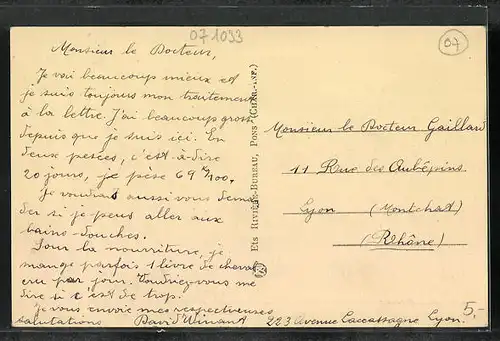 071033
07
Monsieur le Docteur,
Je vai beaucoup mieux et
je suis toujours mon traitement
à la lettre. J'ai beaucoup grossi
depuis que je suis ici. En
deux pesées, c'est-à-dire
20 jours, je pèse 69 k 700.
Je voudrais aussi vous deman
der si je peus aller aux
bains-douches.
Pour la nourriture, je
mange parfois 1 livre de cheval
cru par jour. Voudriez-vous me
dire si c'est de trop.
Je vous envoie mes respectueuses
salutations David Winant 223 Avenue Laccassagne Lyon.
Ets RIVIÈRE-BUREAU, PONS (CHAR.-INF.)
Monsieur le Docteur Gaillard
11 Rue des Aubépins
Lyon (Montchat)
(Rhône)
5,-